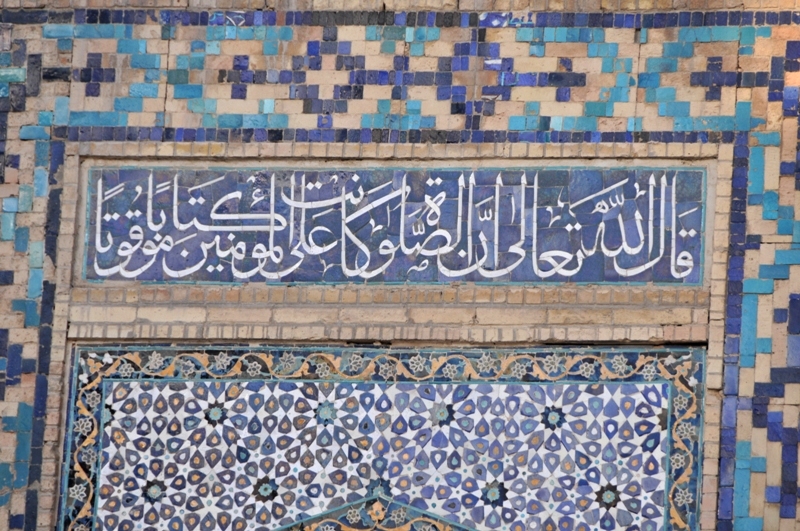 قال الله تعالى إنّ الصّلوة كانت على المؤمنين كتابًا موقوتًا